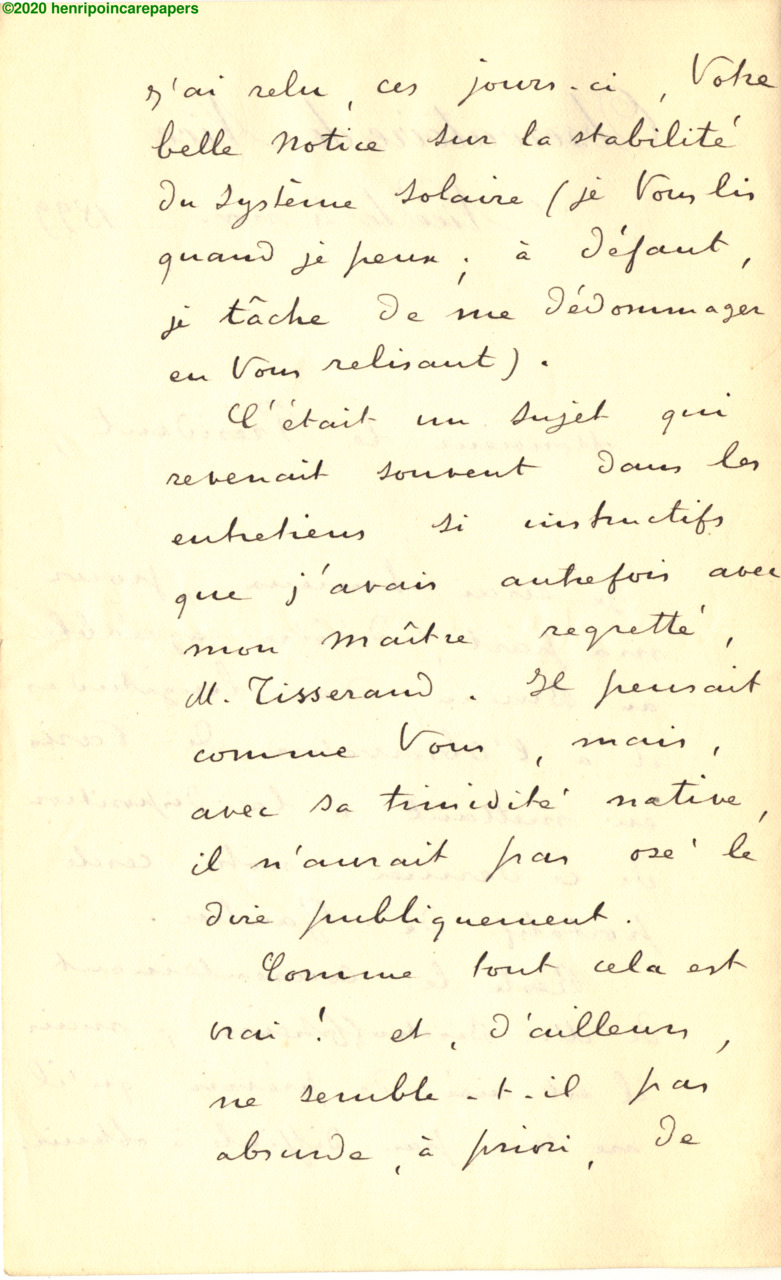 ©2020 henripoincarepapers
J'ai relu, ces jours-ci, Votre
belle Notice sur la stabilité
du système solaire (je Vous lis
quand je peux ; à défaut,
je tâche de me dédommager
en Vous relisant).
C'était un sujet qui
revenait souvent dans les
entretiens si instructifs
que j'avais autrefois avec
mon maître regretté,
M. Tisserand. Il pensait
comme Vous, mais,
avec sa timidité native,
il n'aurait pas osé le
dire publiquement.
Comme tout cela est
vrai ! et, d'ailleurs,
ne semble-t-il pas
absurde, à priori, de